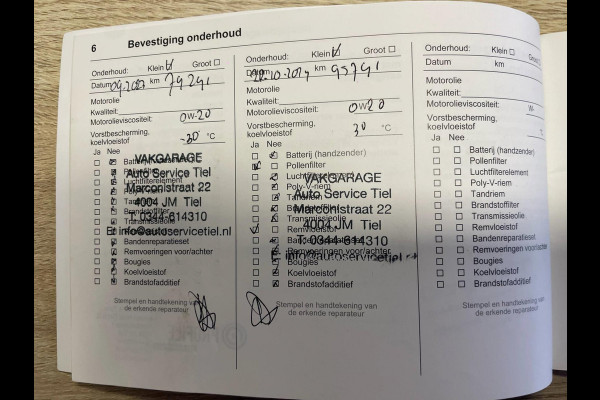 6 Bevestiging onderhoud
Onderhoud: Klein Groot
Datum 09-2023 km 79291
Motorolie
Kwaliteit:
Motorolieviscositeit: 0W-20
Vorstbescherming,
koelvloeistof -30 °C
Ja Nee
VAKGARAGE
Auto Service Tiel
Marconistraat 22
4004 JM Tiel
T: 0344-614310
E: info@autoservicetiel.nl
Luchtfilterelement
Transmissieolie
Bandenreparatieset
Remvoeringen voor/achter
Bougies
Koelvloeistof
Brandstofadditief
Stempel en handtekening van
de erkende reparateur
Onderhoud: Klein Groot
Datum 10-2024 km 95791
Motorolie
Kwaliteit:
Motorolieviscositeit: 0W20
Vorstbescherming,
koelvloeistof 30 °C
Ja Nee
Batterij (handzender)
Pollenfilter
Luchtfilterelement
Poly-V-riem
Tandriem
Brandstoffilter
Transmissieolie
Remvloeistof
VAKGARAGE
Auto Service Tiel
Marconistraat 22
4004 JM Tiel
T: 0344-614310
E: info@autoservicetiel.nl
Remvoeringen voor/achter
Bougies
Koelvloeistof
Brandstofadditief
Stempel en handtekening van
de erkende reparateur
Onderhoud: Klein
Datum km
Motorolie
Kwaliteit:
Motorolieviscositeit: W-
Vorstbescherming,
koelvloeistof
Ja Nee
Batterij (handzender)
Pollenfilter
Luchtfilterelement
Poly-V-riem
Tandriem
Brandstoffilter
Transmissieolie
Remvloeistof
Bandenreparatieset
Remvoeringen voor/achter
Bougies
Koelvloeistof
Brandstofadditief
Stempel en handtekening van
de erkende reparateur